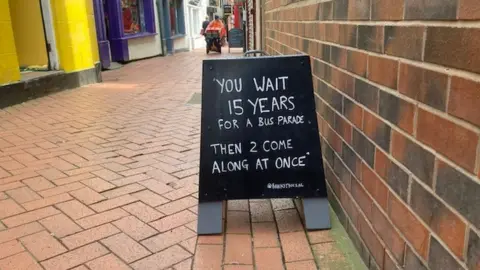 "YOU WAIT
15 YEARS
FOR A BUS PARADE
THEN 2 COME
ALONG AT ONCE"